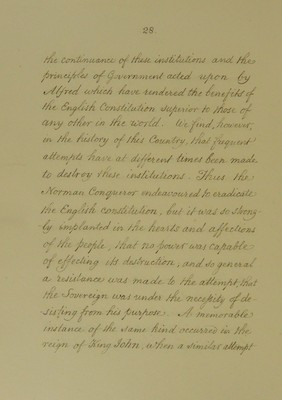 28.
the continuance of these institutions and the
principles of Government acted upon by
Alfred which have rendered the benefits of
the English Constitution superior to those of
any other in the world. We find, however,
in the history of this Country, that frequent
attempts have at different times been made
to destroy these institutions. Thus the
Norman Conqueror endeavoured to eradicate
the English constitution, but it was so strong-
ly implanted in the hearts and affections
of the people, that no power was capable
of effecting its destruction, and so general
a resistance was made to the attempt, that
the Sovereign was under the necessity of de-
sisting from his purpose. A memorable
instance of the same kind occurred in the
reign of King John, when a similar attempt